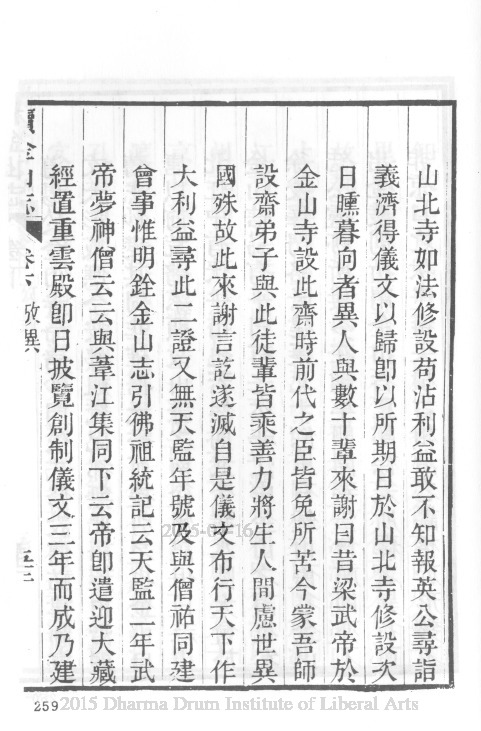 山北寺如法修設苟沾利益敢不知報英公尋詣
義濟得儀文以歸卽以所期日於山北寺修設次
日曛暮向者異人與數十輩來謝曰昔梁武帝於
金山寺設此齋時前代之臣皆免所苦今蒙吾師
設齋弟子與此徒輩皆乘善力將生人間慮世異
國殊故此來謝言訖遂滅自是儀文布行天下作
大利益尋此二證又無天監年號及與僧祐同建
會事惟明銓金山志引佛祖統記云天監二年武
帝夢神僧云云與葦江集同下云帝卽遣迎大藏
經置重雲殿卽日披覽創制儀文三年而成乃建
續金山志
卷下
五三
259
2015 Dharma Drum Institute of Liberal Arts